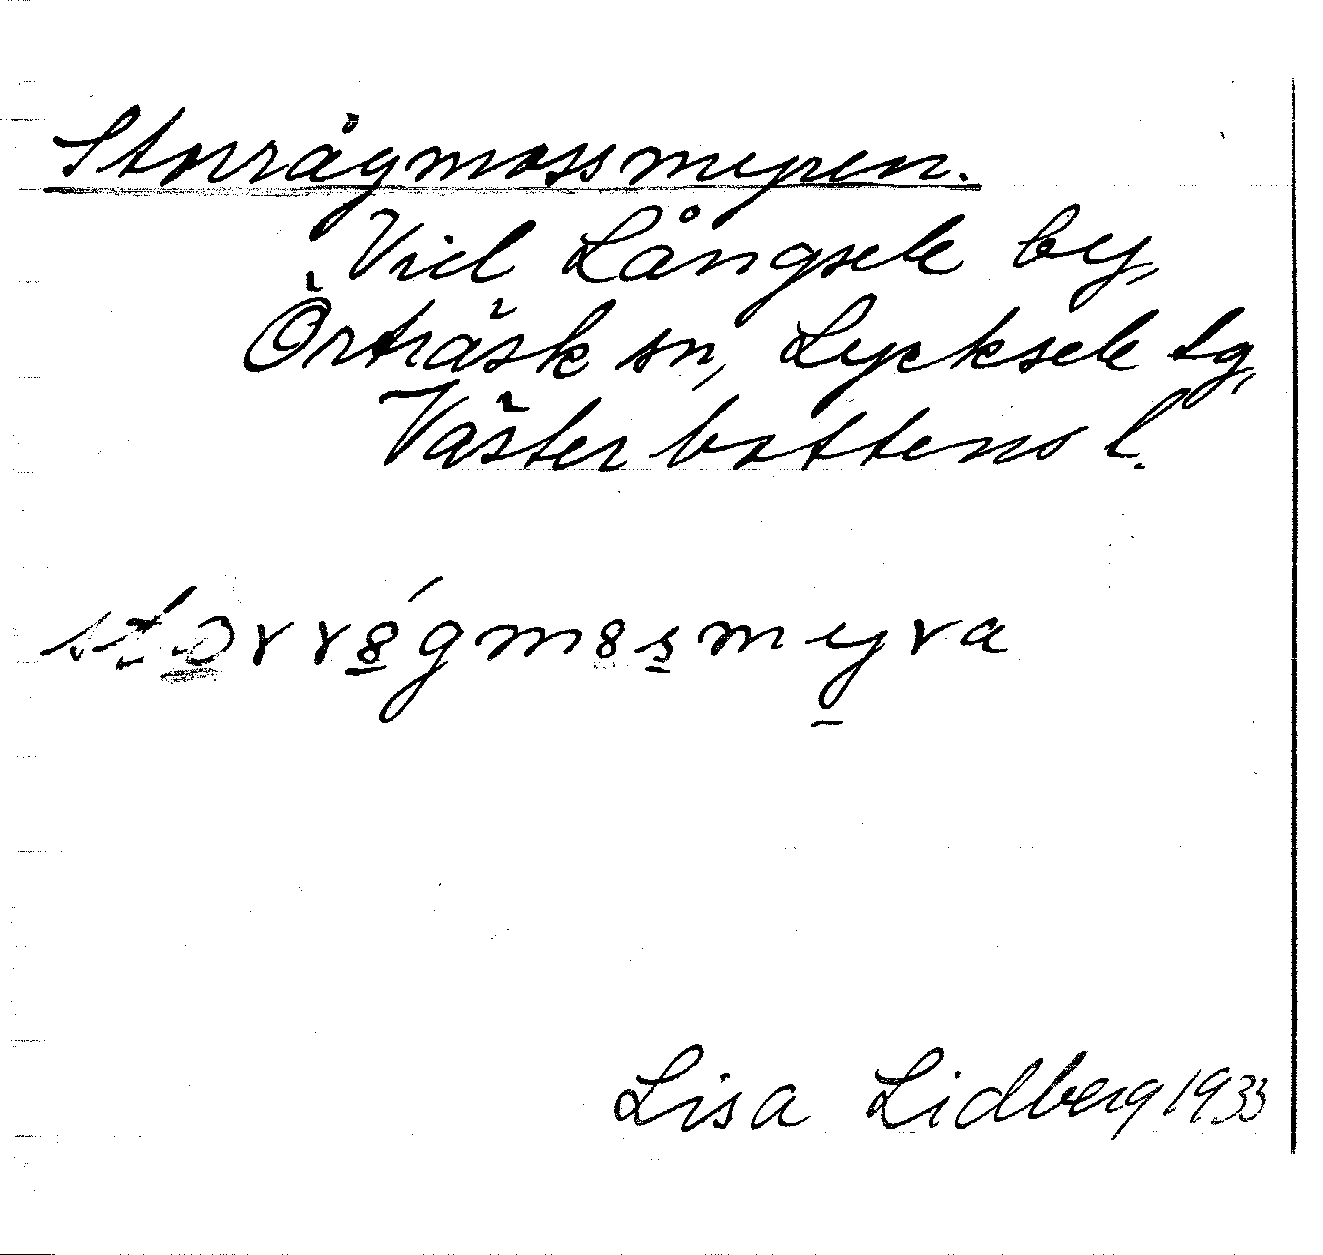 Storrågmossmyren.
Vid Långsele by,
Örträsk sn, Lycksele tg,
Västerbottens l.
Lisa Lidberg 1933